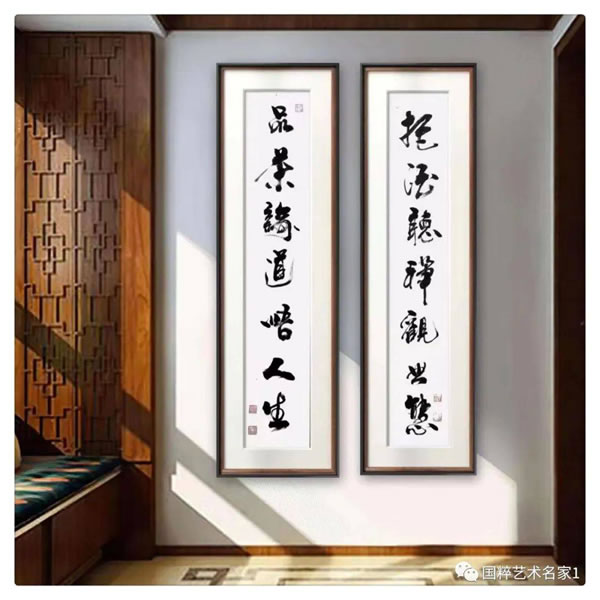 把酒聽禪觀世態
品茶論道悟人生
国粹艺术名家1